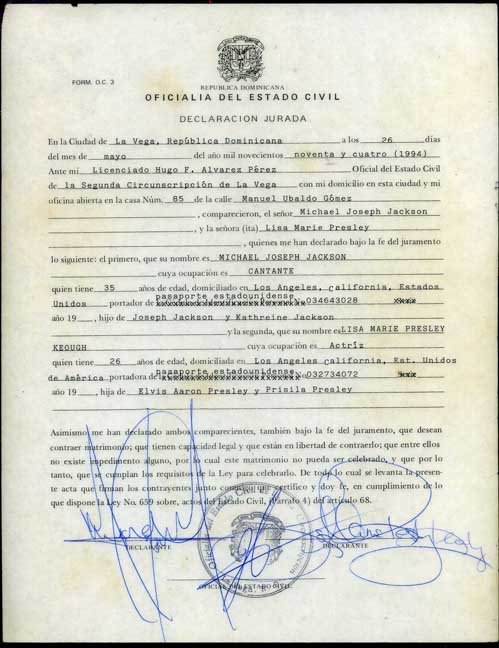 FORM. O.C. 3
REPUBLICA DOMINICANA
OFICIALIA DEL ESTADO CIVIL
DECLARACION JURADA
En la Ciudad de La Vega, República Dominicana a los 26 días
del mes de mayo del año mil novecientos noventa y cuatro (1994)
Ante mí Licenciado Hugo F. Alvarez Pérez Oficial del Estado Civil
de la Segunda Circunscripción de La Vega con mi domicilio en esta ciudad y mi
oficina abierta en la casa Núm. 85 de la calle Manuel Ubaldo Gómez
, comparecieron, el señor Michael Joseph Jackson
, y la señora (ita) Lisa Marie Presley
, quienes me han declarado bajo la fe del juramento
lo siguiente: el primero, que su nombre es MICHAEL JOSEPH JACKSON
cuya ocupación es CANTANTE
quien tiene 35 años de edad, domiciliado en Los Angeles, California, Estados
Unidos portador de pasaporte estadounidense No 034643028
año 19 , hijo de Joseph Jackson y Kathreine Jackson
y la segunda, que su nombre es LISA MARIE PRESLEY
KEOUGH cuya ocupación es Actríz
quien tiene 26 años de edad, domiciliada en Los Angeles california, Est. Unidos
de América portadora de pasaporte estadounidense No 032734072
año 19 , hija de Elvis Aaron Presley y Prisila Presley
Asimismo me han declarado ambos comparecientes, también bajo la fe del juramento, que desean
contraer matrimonio; que tienen capacidad legal y que están en libertad de contraerlo; que entre ellos
no existe impedimento alguno, por lo cual este matrimonio no pueda ser celebrado, y que por lo
tanto, que se cumplan los requisitos de la Ley para celebrarlo. De todo lo cual se levanta la presen-
te acta que firman los contrayentes junto conmigo, que certifico y doy fe, en cumplimiento de lo
que dispone la Ley No. 659 sobre, actos del Estado Civil, (Párrafo 4) del artículo 68.
DECLARANTE DECLARANTE
OFICIAL DEL ESTADO CIVIL